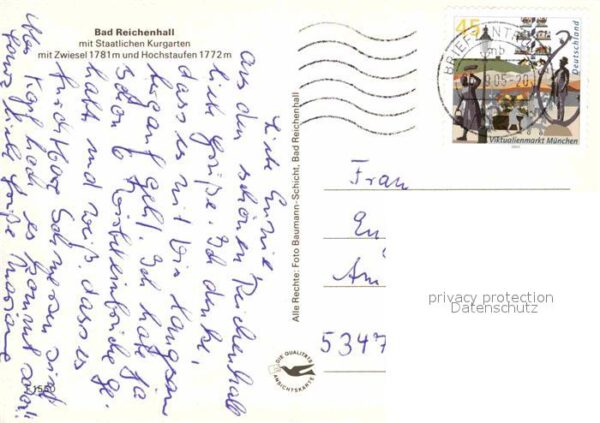 Bad Reichenhall
mit Staatlichen Kurgarten
mit Zwiesel 1781 m und Hochstaufen 1772 m
Liebe
aus dem schönen Reichenhall
liebe Grüße. Ich denke,
dass es mit Dir langsam
bergauf geht. Ich habe ja
schon 6 ge-
habt und weiß, dass es
furchtbare Schmerzen sind
Also Kopf hoch es kommt schon!!
liebe Grüße Marianne
1550
Alle Rechte: Foto Baumann-Schicht, Bad Reichenhall
DIE QUALITÄTS
ANSICHTSKARTE
BRIEFZENTRUM
45
Deutschland
Viktualienmarkt München
Frau
Am
5347
privacy protection
Datenschutz